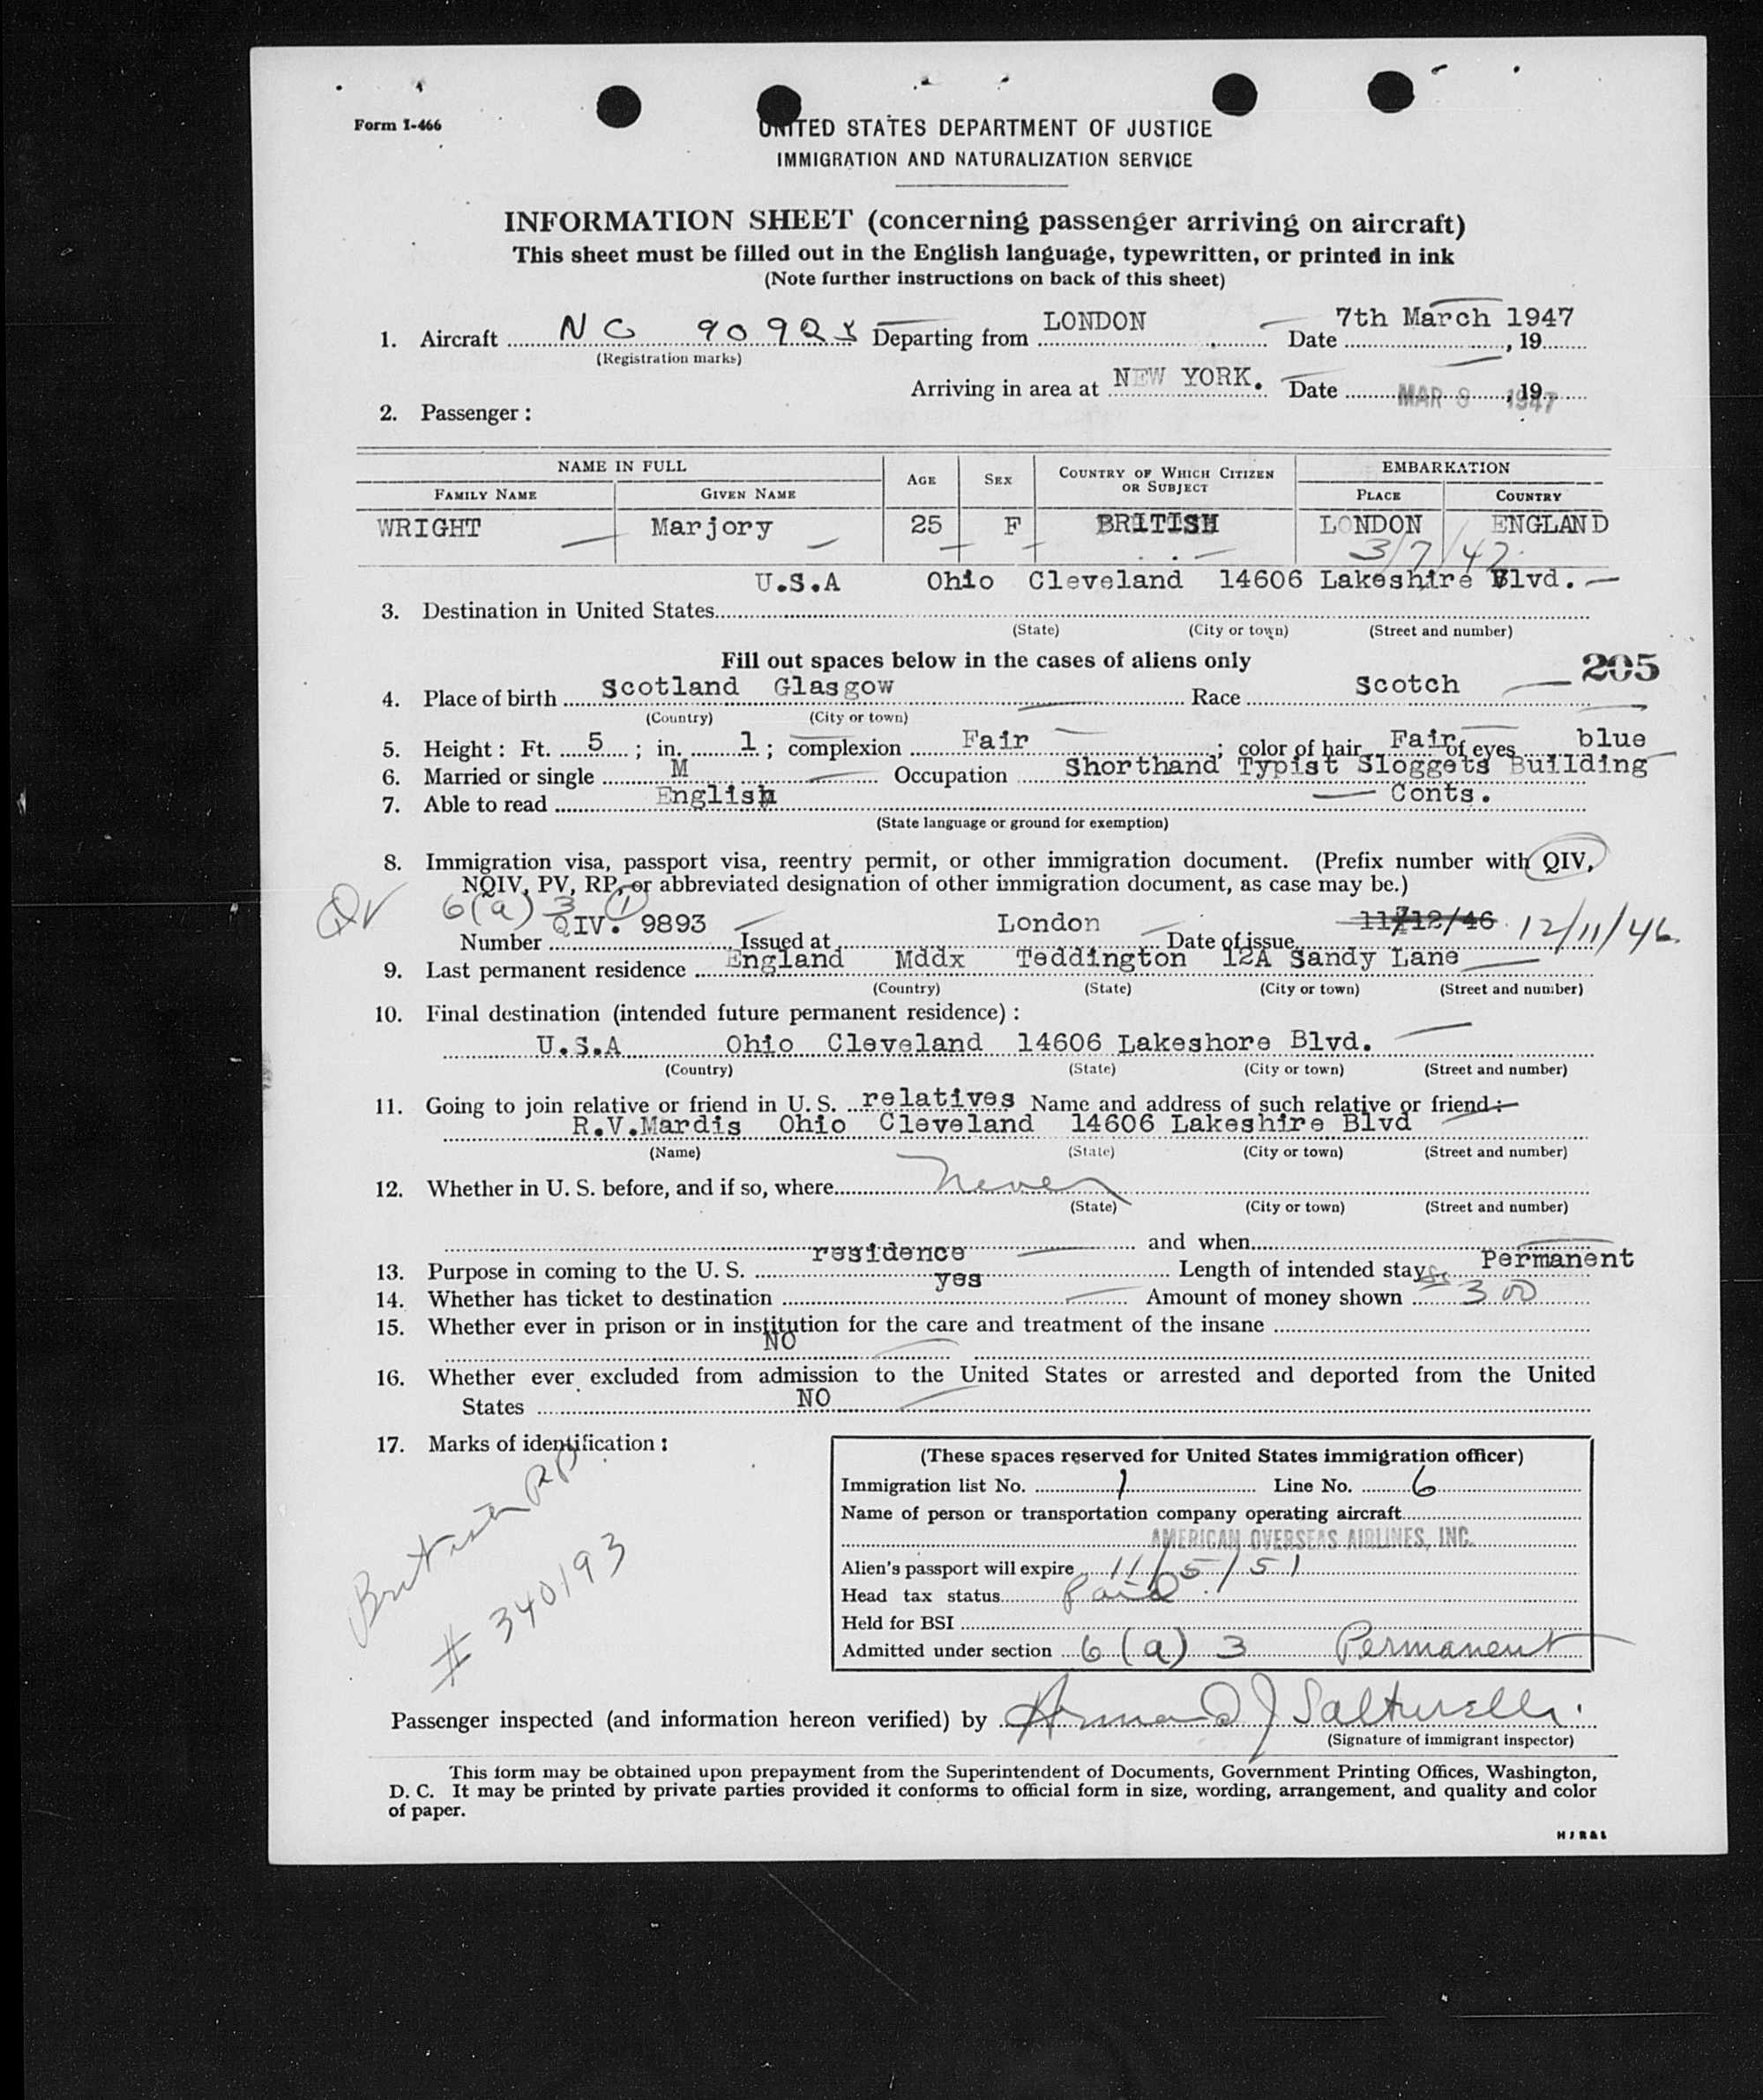 Form I-466
UNITED STATES DEPARTMENT OF JUSTICE
IMMIGRATION AND NATURALIZATION SERVICE
INFORMATION SHEET (concerning passenger arriving on aircraft)
This sheet must be filled out in the English language, typewritten, or printed in ink
(Note further instructions on back of this sheet)
1. Aircraft NC Departing from LONDON Date 7th March 1947, 19
(Registration marks)
Arriving in area at NEW YORK. Date MAR 8 1947, 19
2. Passenger:
NAME IN FULL AGE SEX COUNTRY OF WHICH CITIZEN OR SUBJECT EMBARKATION
FAMILY NAME GIVEN NAME PLACE COUNTRY
WRIGHT Marjory 25 F BRITISH LONDON ENGLAND
3/7/47.
U.S.A Ohio Cleveland 14606 Lakeshire Blvd.
3. Destination in United States
(State) (City or town) (Street and number)
Fill out spaces below in the cases of aliens only
205
4. Place of birth Scotland Glasgow Race Scotch
(Country) (City or town)
5. Height: Ft. 5; in. 1; complexion Fair; color of hair Fair of eyes blue
6. Married or single M Occupation Shorthand Typist Sloggets Building
Conts.
7. Able to read English
(State language or ground for exemption)
8. Immigration visa, passport visa, reentry permit, or other immigration document. (Prefix number with QIV,
NQIV, PV, RP, or abbreviated designation of other immigration document, as case may be.)
QV 6(a) 3 1
Number QIV. 9893 Issued at London Date of issue 11/12/46 12/11/46
9. Last permanent residence England Mddx Teddington 12A Sandy Lane
(Country) (State) (City or town) (Street and number)
10. Final destination (intended future permanent residence):
U.S.A Ohio Cleveland 14606 Lakeshore Blvd.
(Country) (State) (City or town) (Street and number)
11. Going to join relative or friend in U. S. relatives Name and address of such relative or friend:
R.V.Mardis Ohio Cleveland 14606 Lakeshire Blvd
(Name) (State) (City or town) (Street and number)
12. Whether in U. S. before, and if so, where never
(State) (City or town) (Street and number)
and when
13. Purpose in coming to the U. S. residence Length of intended stay Permanent
14. Whether has ticket to destination yes Amount of money shown 300
15. Whether ever in prison or in institution for the care and treatment of the insane
NO
16. Whether ever excluded from admission to the United States or arrested and deported from the United
States NO
17. Marks of identification:
British PP
# 340193
(These spaces reserved for United States immigration officer)
Immigration list No. 1 Line No. 6
Name of person or transportation company operating aircraft
AMERICAN OVERSEAS AIRLINES, INC.
Alien's passport will expire 11/5/51
Head tax status Paid
Held for BSI
Admitted under section 6(a) 3 Permanent
Passenger inspected (and information hereon verified) by
(Signature of immigrant inspector)
This form may be obtained upon prepayment from the Superintendent of Documents, Government Printing Offices, Washington,
D. C. It may be printed by private parties provided it conforms to official form in size, wording, arrangement, and quality and color
of paper.